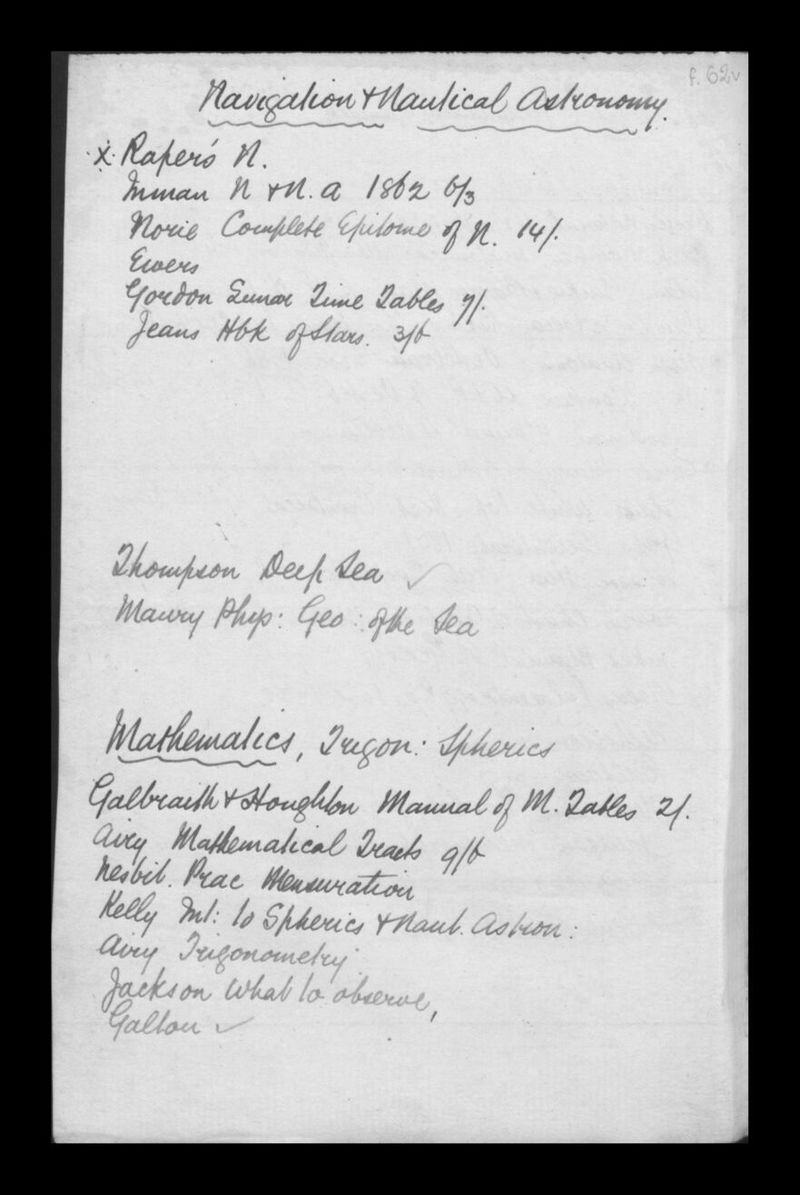 f. 62v
Navigation & Nautical Astronomy.
x Raper's N.
Inman N & N. A 1862 6/3
Norie Complete Epitome of N. 14/.
Ewers
Gordon Lunar Time Tables 7/.
Jeans Hbk of Stars. 3/6
Thompson Deep Sea ✓
Maury Phys: Geo: of the Sea
Mathematics, Trigon: Spherics
Galbraith & Houghton Manual of M. Tables 2/.
Airy Mathematical Tracts 9/6
Nesbit. Prac Mensuration
Kelly Int: to Spherics & Naut. Astron:
Airy Trigonometry
Jackson What to observe,
Galton ✓